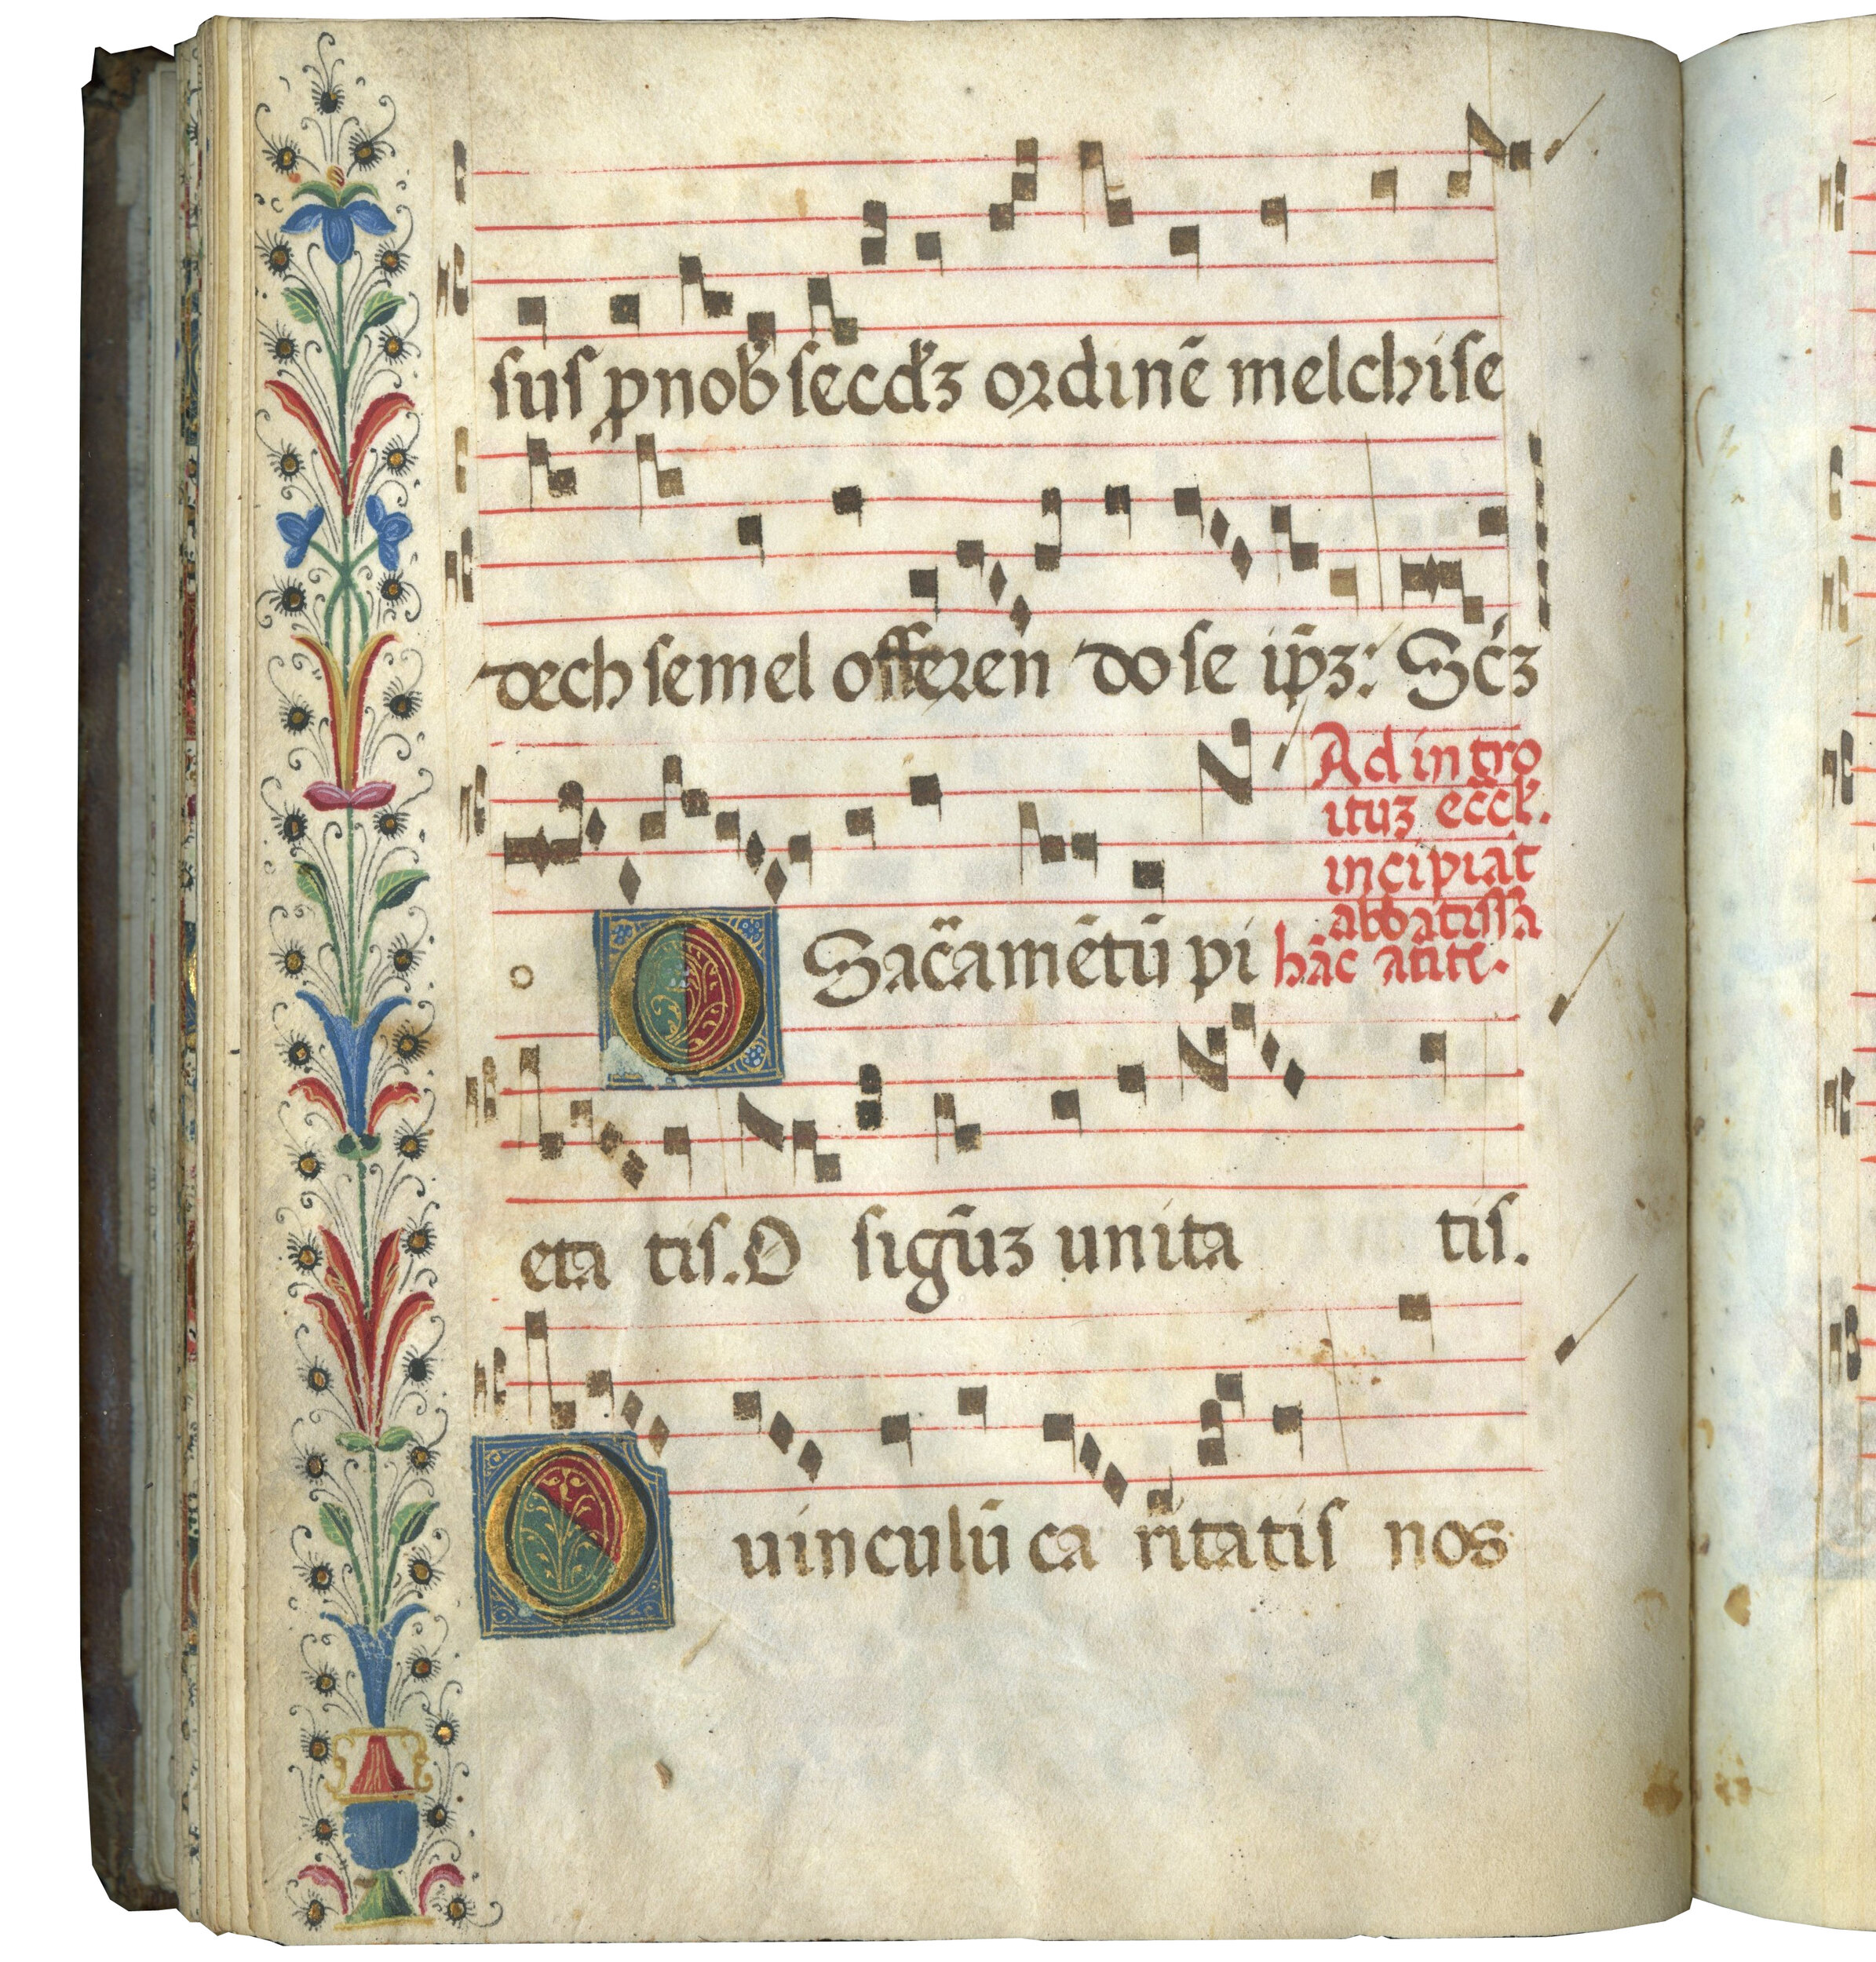 suſ ꝓ nob̃ ſecdꝫ ordinē melchiſe
dech ſemel offeren do ſe ip̄ꝫ: Sc̄ꝫ
Ad intro
ituꝫ eccl̄.
incipiāt
abbatiſſa
O Sac̄amētū pi hāc
eta tiſ. O ſigūꝫ unita tiſ.
O uinculū ca ritatiſ nos